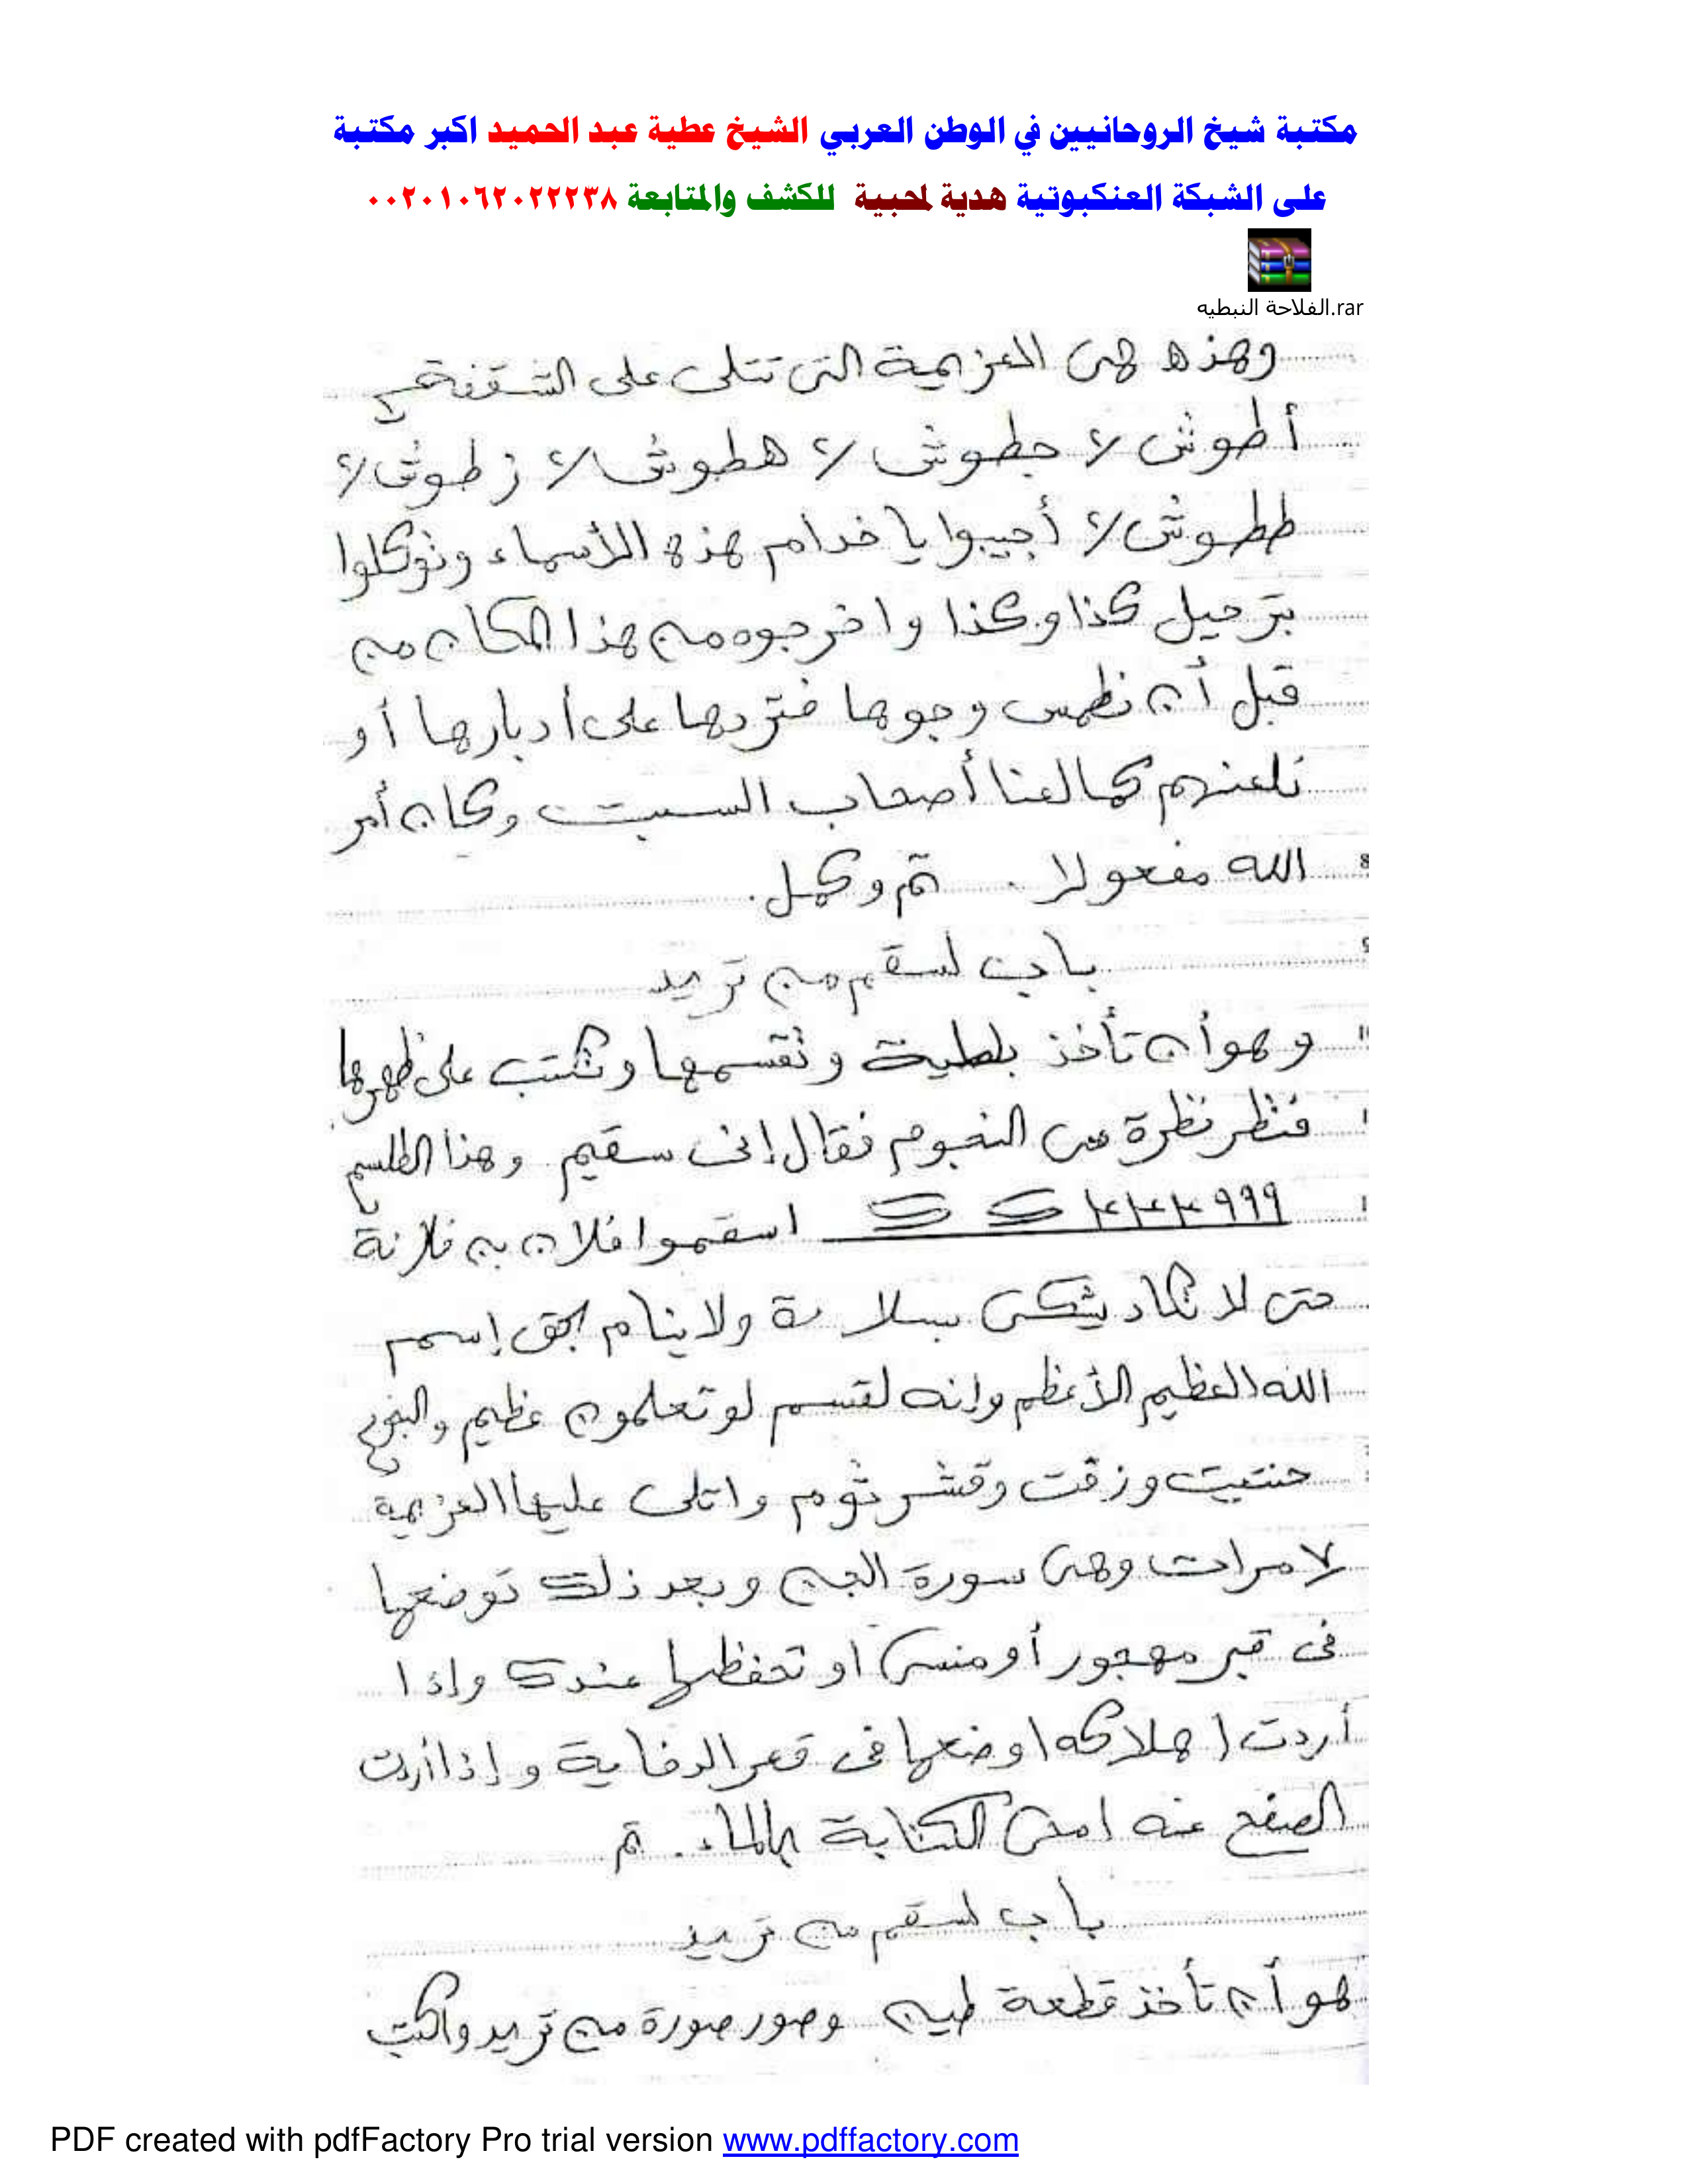 مكتبة شيخ الروحانيين في الوطن العربي الشيخ عطية عبد الحميد اكبر مكتبة
على الشبكة العنكبوتية هدية لمحبية للكشف والمتابعة ٠٠٢٠١٠٦٢٠٢٢٢٣٨
الفلاحة النبطيه.rar
وهذه هى العزيمة التى تتلى على الشقفة
أطوش ٧ جطوش ٧ هطوش ٧ زطوش ٧
ططوش ٧ أجيبوا يا خدام هذه الأسماء وتوكلوا
بترحيل كذا وكذا واخرجوه من هذا المكان من
قبل أن نطمس وجوها فنردها على أدبارها أو
نلعنهم كما لعنا أصحاب السبت وكان أمر
الله مفعولا . تم وكمل .
باب لسقم من تريد
وهو أن تأخذ بلطية وتقسمها وتكتب على ظهرها
فنظر نظرة فى النجوم فقال إنى سقيم وهذا الطلسم
٩٩٩ اسقموا فلان بن فلانة
حتى لا تكاد ولا ينام بحق إسم
الله العظيم الأعظم وإنه لقسم لو تعلمون عظيم والبخور
حنتيت وزفت وقشر ثوم واتلى عليها العزيمة
٧ مرات وهى سورة الجن وبعد ذلك توضعها
فى قبر مهجور أو منسى او تحفظها عندك وإذا
أردت اهلاكه اوضعها فى قعر الدفاية وإذا أردت
الصفح عنه امحى الكتابة بالماء . تم
باب لسقم من تريد
هو أن تأخذ قطعة طين وصور صورة من تريد واكتب
PDF created with pdfFactory Pro trial version www.pdffactory.com